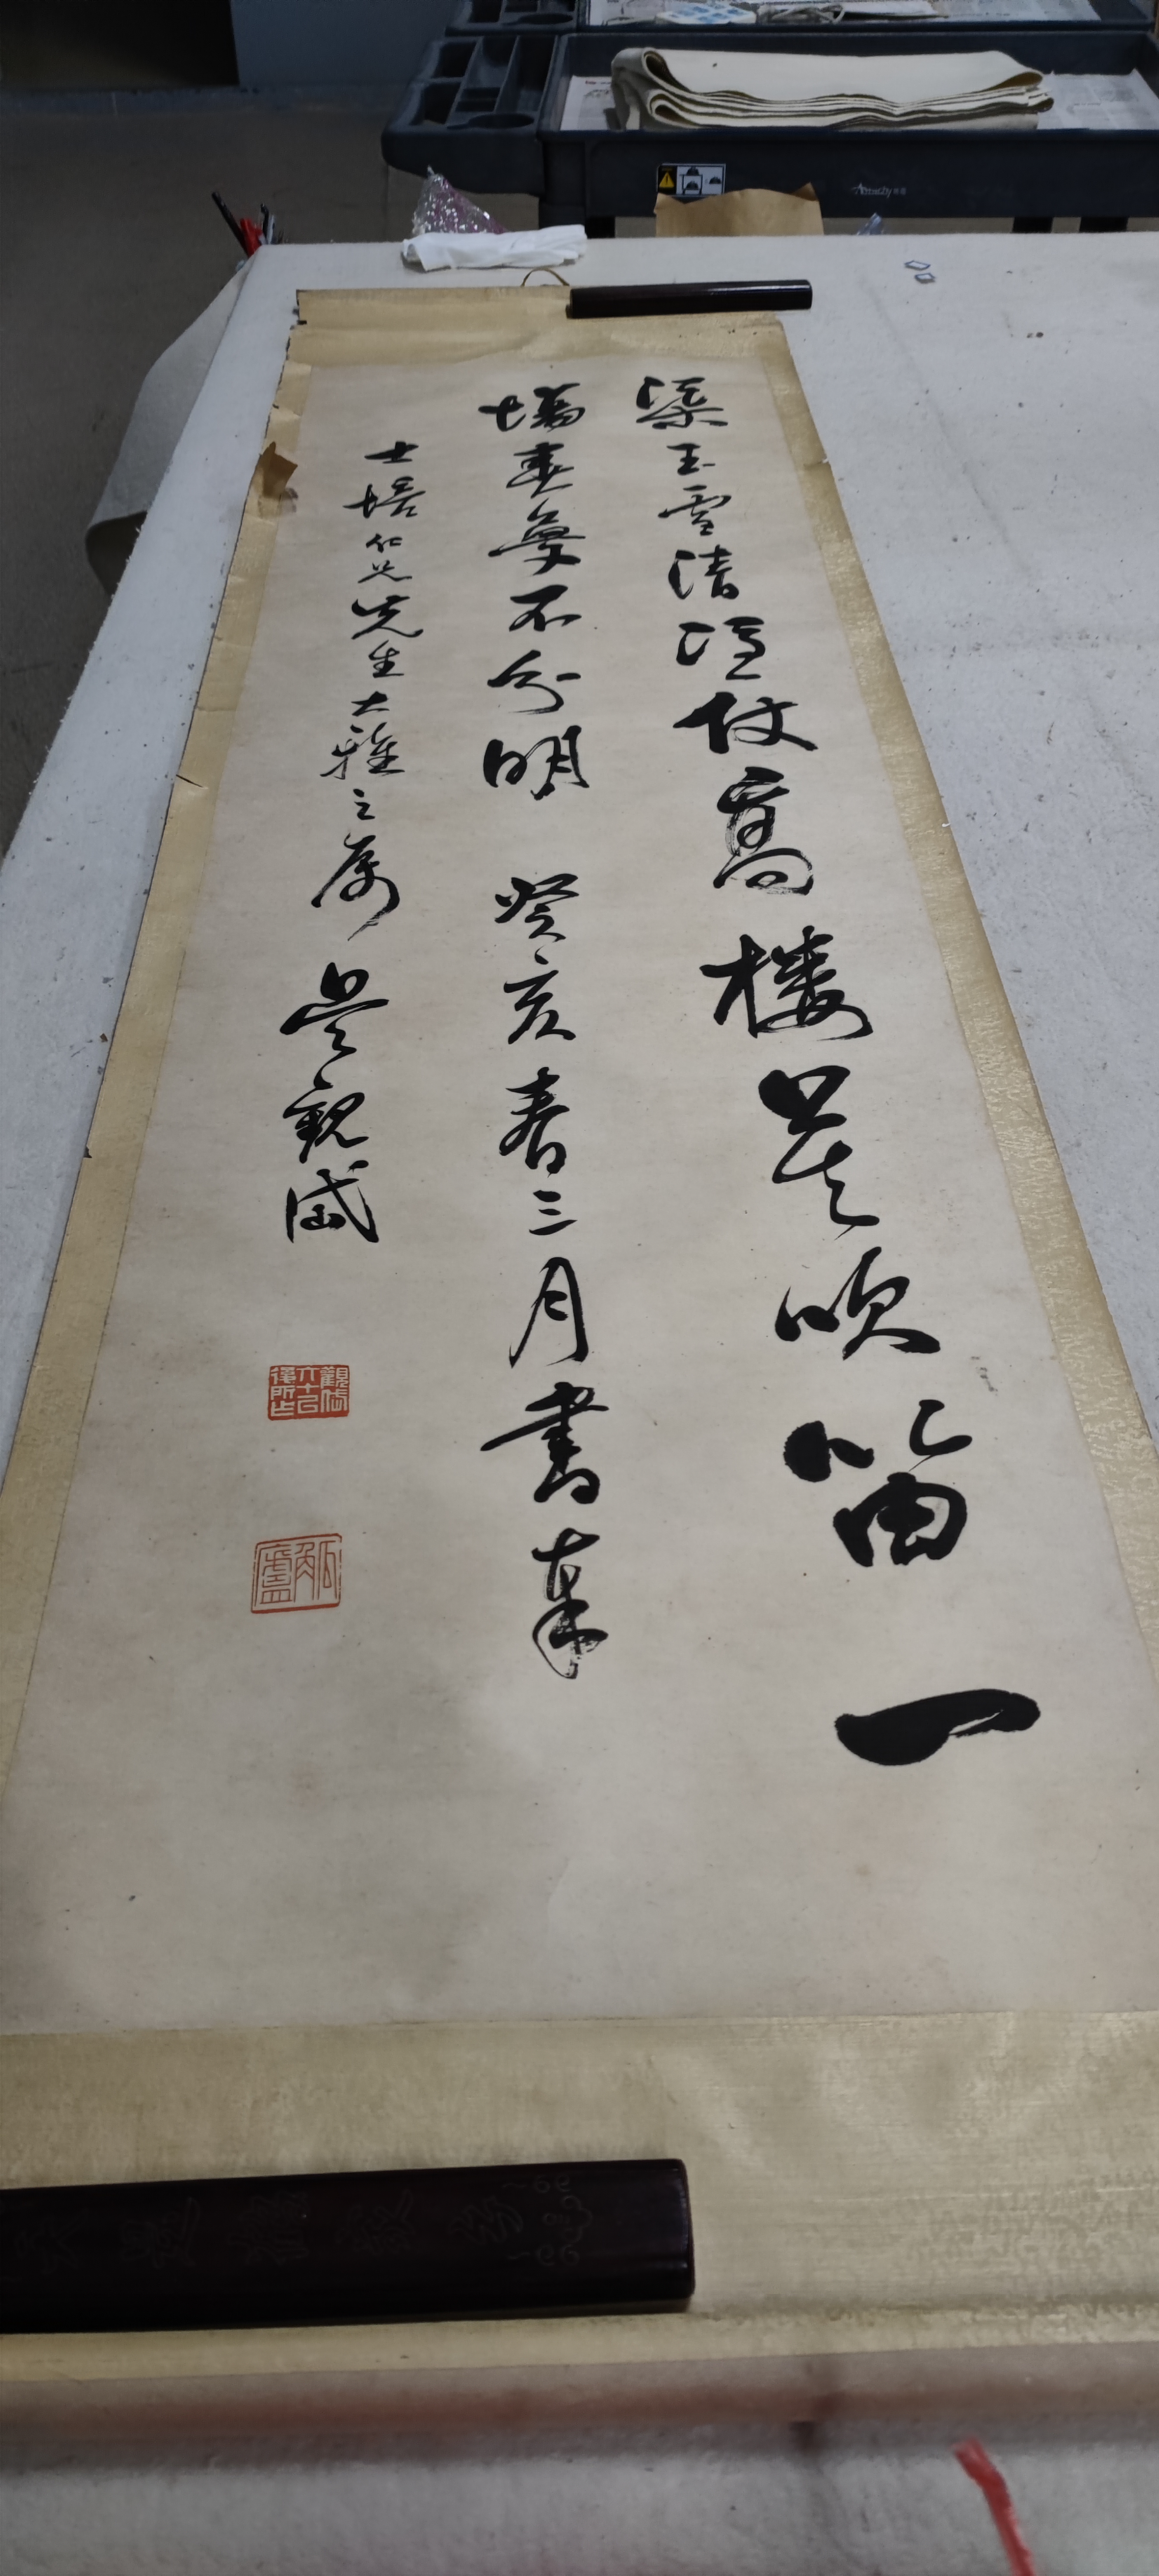 玉雪清憑仗高樓莫吹笛一
場春夢不分明 癸亥春三月書奉
士培仁兄先生大雅之屬 吳觀岱
觀岱六十以後所作
觚廬